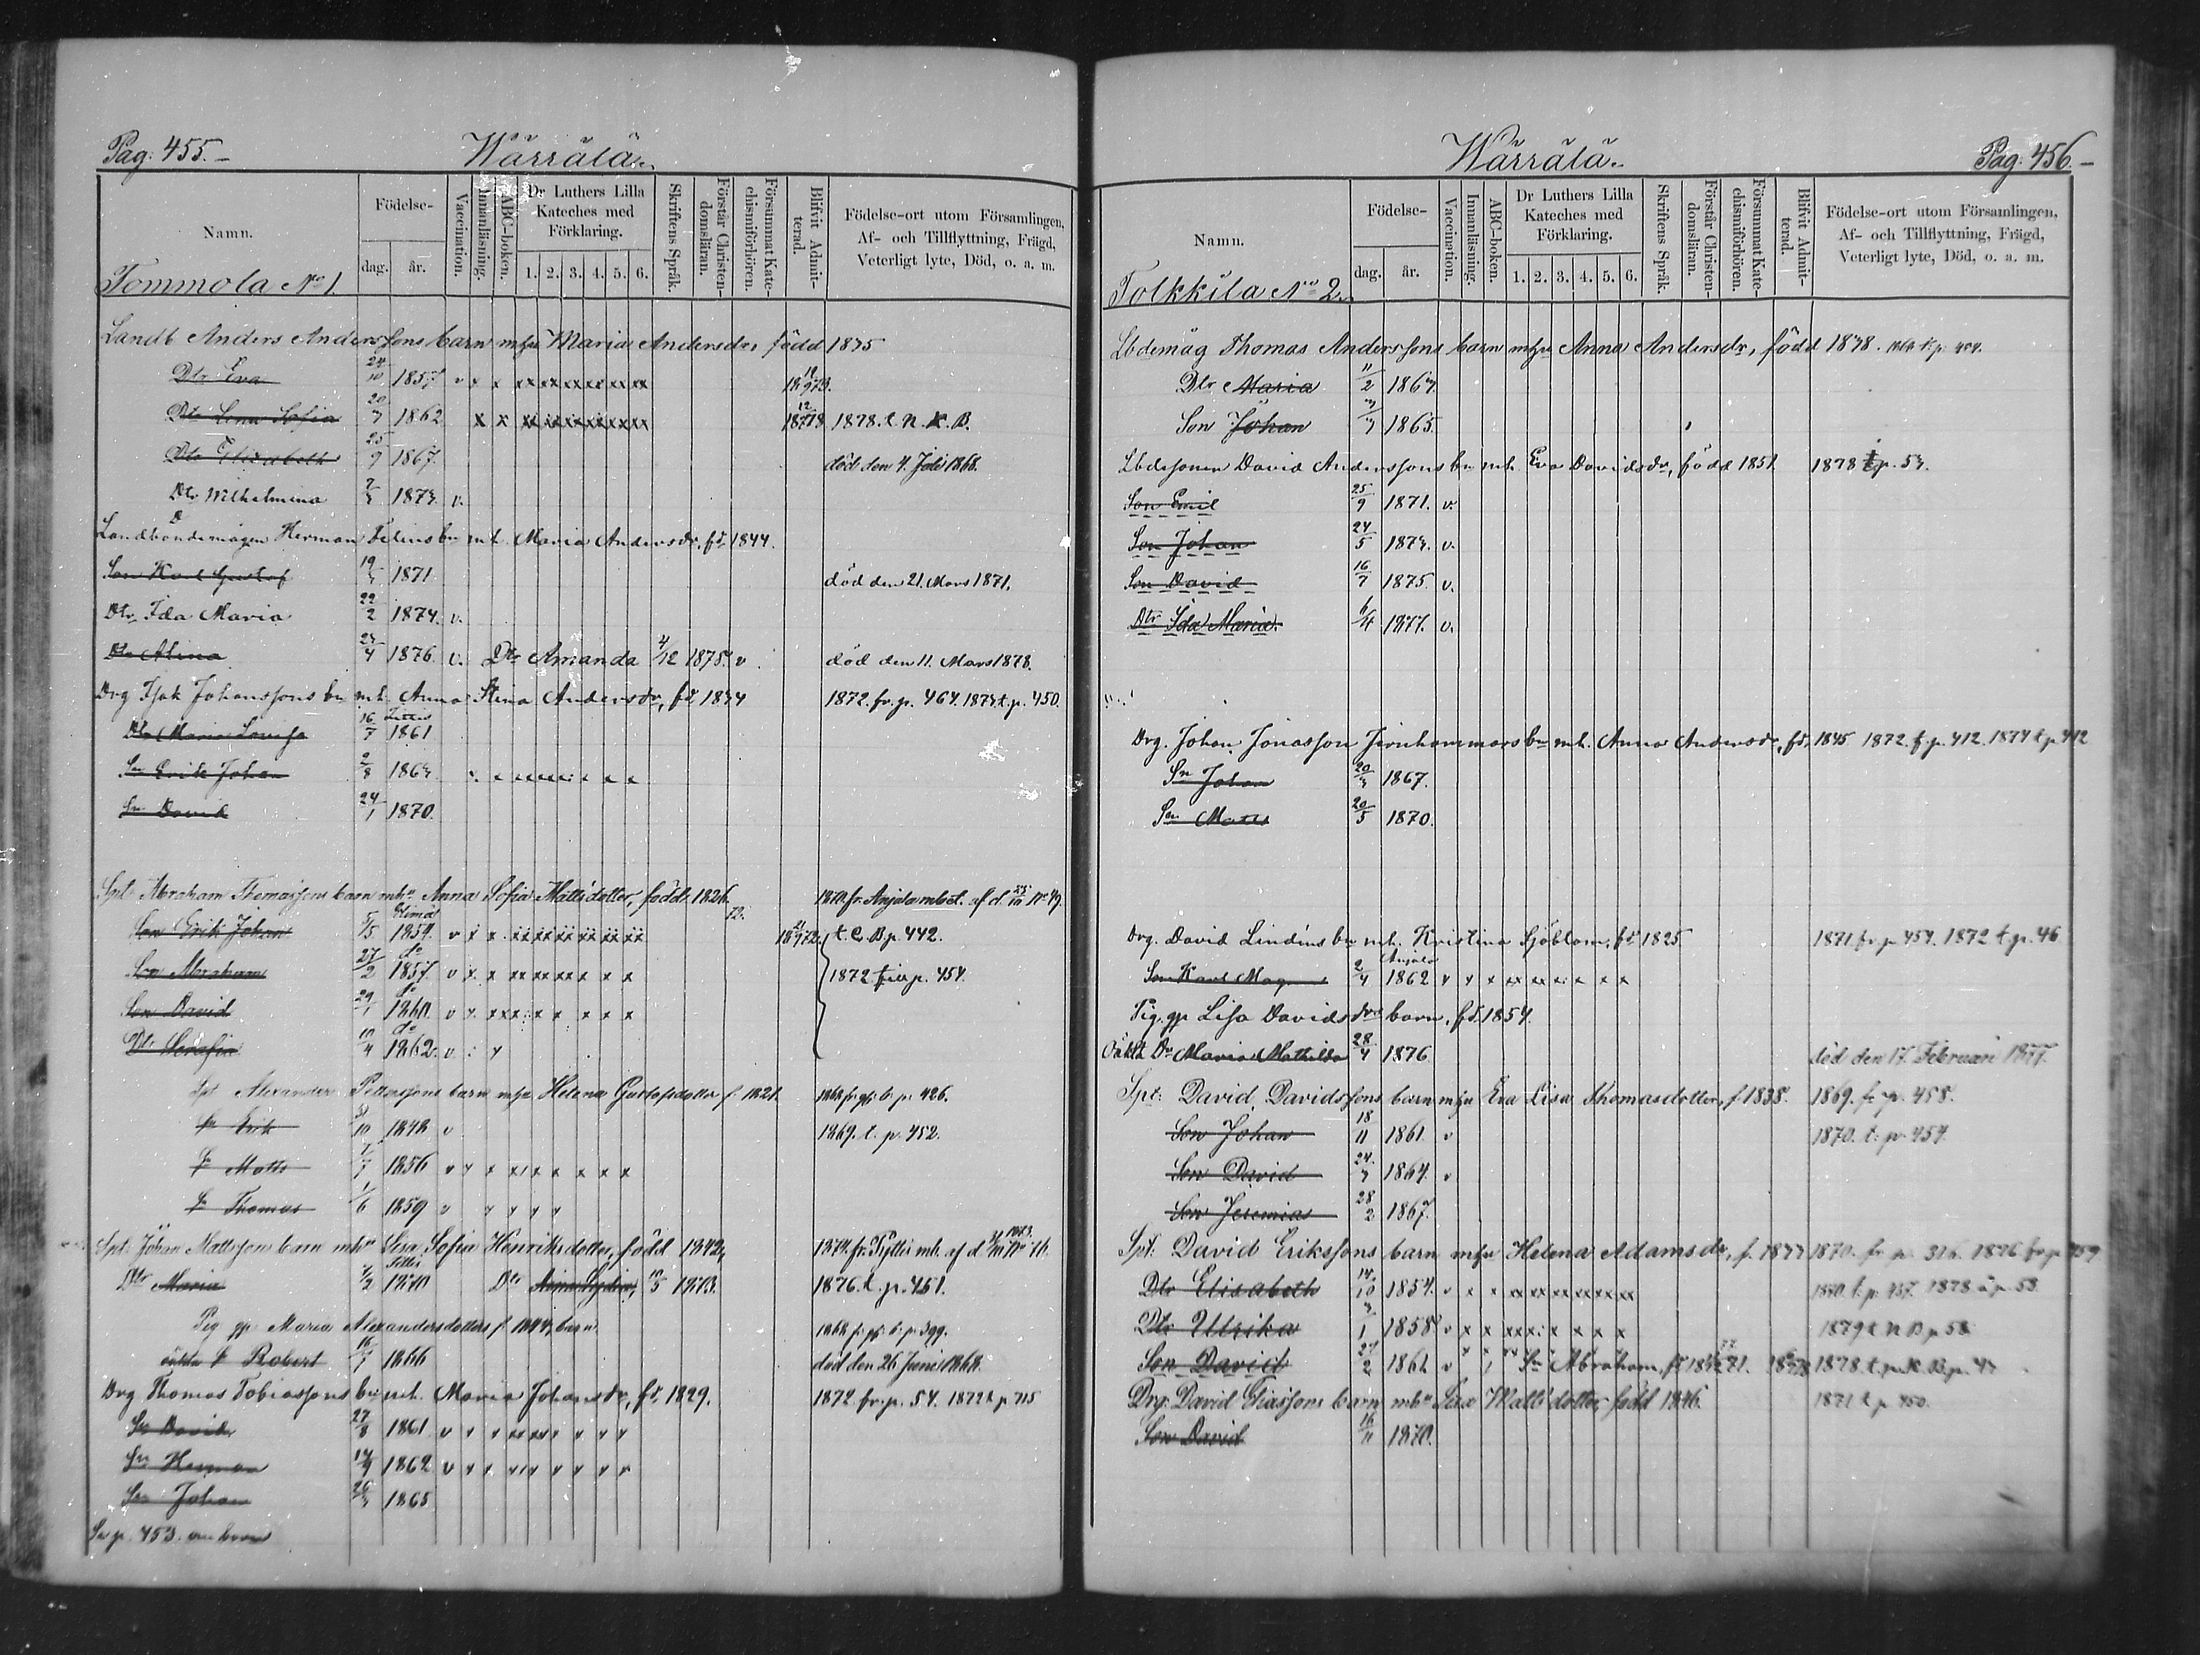 Pag: 455.
Wärrälä.
Namn.
Födelse-
dag. år.
Vaccination.
Innanläsning.
ABC-boken.
Dr Luthers Lilla Kateches med Förklaring.
1. 2. 3. 4. 5. 6.
Skriftens Språk.
Förstår Christendomsläran.
Försummat Katechismiförhören.
Blifvit Admitterad.
Födelse-ort utom Församlingen, Af- och Tillflyttning, Frägd, Veterligt lyte, Död, o. a. m.
Tommola No 1.
Landb Anders Anderssons barn mhu Maria Andersdr född 1835
Dtr Eva 24/10 1857 v x x xx xx xx xx xx xx
Dtr Lena Sofia 20/7 1862 x x 1878 t. N. K. B.
Dtr Elisabeth 25/9 1867. död den 4. Juli 1868.
Dtr Wilhelmina 1873. v.
Landbondemågen Herman Felins bn mh. Maria Andersdr, fd. 1844.
Son Karl Gustaf 1871 död den 21. Mars 1871.
Dtr Ida Maria 22/2 1874. v.
Dtr Alina 1876. v. Dtr Amanda 1875. v död den 11. Mars 1878.
Drg Isak Johanssons bn mh. Anna Stina Andersdr, fd. 1834 1872. fr. p. 464. 1873. t. p. 450.
Dtr Maria Lovisa 16/7 1861
Sn Erik Johan 2/8 1863.
Sn David 24/1 1870.
Spt: Abraham Thomassons barn mhu Anna Sofia Mattsdotter, född 1826.
Son Erik Johan 5/5 1854. v x x t. C. B. p. 442.
Son Abraham 27/2 1857 v x x xx xx xx x x 1872 p. 454.
Son David 29/1 1860. v x
Dtr Serafia 10/4 1862. v
Spt Alexander Petterssons barn mhu Helena Gustafsdotter f. 1821. p. 426.
Sn Erik 1848 v 1869. t. p. 452.
Sn Matts 1/7 1856 v
Sn Thomas 1/6 1859 v
Spt: Johan Mattssons barn mhu Lisa Sofia Henriksdotter, född 1842,
Dtr Maria 1870 Dtr 10/5 1873. 1876. t. p. 451.
Pig gp Maria Alexandersdotters f 1844, barn p. 399.
oäkta Sn Robert 16/7 1866 död den 26 Juni 1868.
Drg Thomas Tobiassons bn mh. Maria Johansdr, fd. 1829. 1872. fr. p. 54. 1872 t. p 715
Sn David 27/8 1861 v
Sn Herman 1862 v
Sn Johan 1865
Se p. 453.
Wärrälä.
Pag: 456.
Namn.
Födelse-
dag. år.
Vaccination.
Innanläsning.
ABC-boken.
Dr Luthers Lilla Kateches med Förklaring.
1. 2. 3. 4. 5. 6.
Skriftens Språk.
Förstår Christendomsläran.
Försummat Katechismiförhören.
Blifvit Admitterad.
Födelse-ort utom Församlingen, Af- och Tillflyttning, Frägd, Veterligt lyte, Död, o. a. m.
Tolkkila No 2.
Lbdemåg Thomas Anderssons barn mhu Anna Andersdr, född 1838.
Dtr Maria 11/2 1863.
Son Johan 1865.
Lbdesonen David Anderssons bn mh. Eva Davidsdr, född 1851. 1878 t. p. 53.
Son Emil 25/9 1871. v.
Son Johan 24/5 1873. v.
Son David 16/7 1875. v.
Dtr Ida Maria. 6/4 1877. v.
Drg. Johan Jonasson Jernhammars bn mh. Anna Andersdr, fd. 1845 1872. f. p. 412. 1874 t. p 442
Sn Johan 1867.
Sn Matts 20/5 1870.
Drg. David Lindins bn mh. Kristina Sjöblom, fd. 1825 1871 fr. p. 454. 1872 t. p. 46
Son Karl Mag. 2/4 1862 v
Pig. gp Lisa Davidsdrs barn, fd. 1854.
Oäkta Dr Maria Mathilda 28/4 1876 död den 17. Februari 1877.
Spt: David Davidssons barn mhu Eva Lisa Thomasdotter, f. 1838. 1869. fr. p. 458.
Son Johan 18/11 1861. v 1870. t. p. 454.
Son David 24/7 1864. v
Son Jeremias 28/2 1867.
Spt: David Erikssons barn mhu Helena Adamsdr, f. 1833 1870. fr. p. 316. 1876 fr. p 459
Dtr Elisabeth 14/10 1854. v x x
Dtr Ulrika 1858 v x x 1879 t N B p 58
Son David 27/2 1861 v Sn Abraham,
Drg. David barn mhu Lisa Mattsdotter född 1846. 1871 t. p. 450.
Son David 16/11 1870.